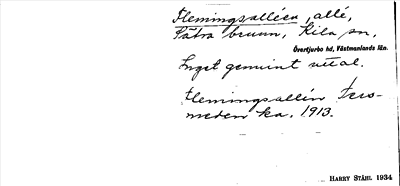 Flemingsalléen, allé,
Sätra brunn, Kila sn,
Övertjurbo hd, Västmanlands län.
Inget genuint uttal.
Flemingsallén Ters-
meden ka. 1913.
HARRY STÅHL 1934